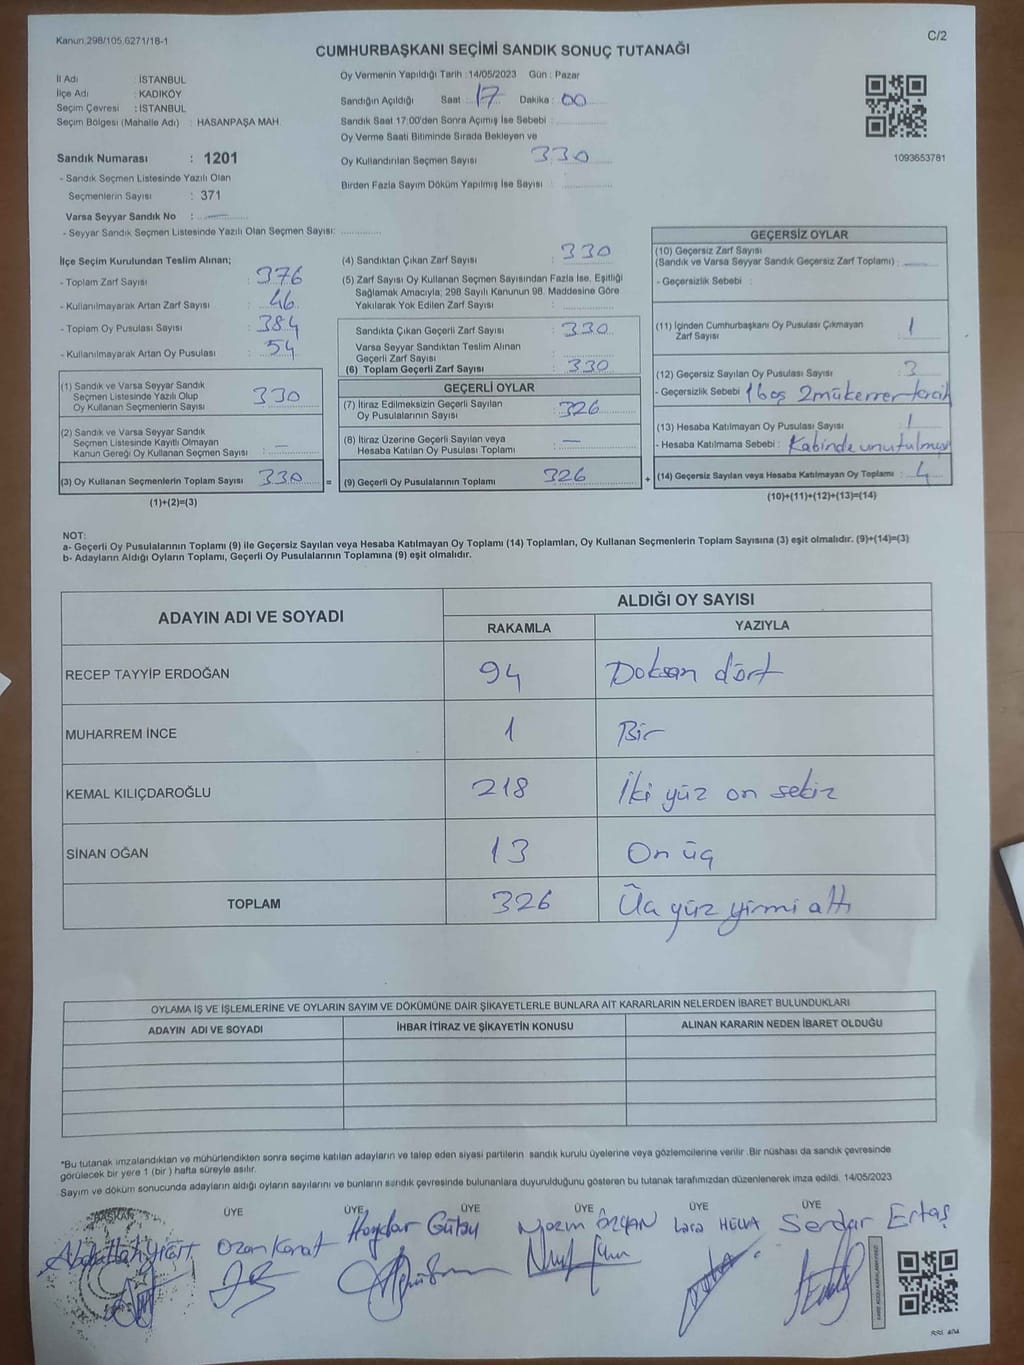 Kanun,298/105,6271/18-1
C/2
CUMHURBAŞKANI SEÇİMİ SANDIK SONUÇ TUTANAĞI
İl Adı : İSTANBUL
İlçe Adı : KADIKÖY
Seçim Çevresi : İSTANBUL
Seçim Bölgesi (Mahalle Adı) : HASANPAŞA MAH.
Sandık Numarası : 1201
- Sandık Seçmen Listesinde Yazılı Olan
Seçmenlerin Sayısı : 371
Varsa Seyyar Sandık No : —
- Seyyar Sandık Seçmen Listesinde Yazılı Olan Seçmen Sayısı:
Oy Vermenin Yapıldığı Tarih :14/05/2023 Gün : Pazar
Sandığın Açıldığı Saat : 17 Dakika : 00
Sandık Saat 17:00'den Sonra Açımış İse Sebebi :
Oy Verme Saati Bitiminde Sırada Bekleyen ve
Oy Kullandırılan Seçmen Sayısı 330
Birden Fazla Sayım Döküm Yapılmış İse Sayısı :
1093653781
İlçe Seçim Kurulundan Teslim Alınan;
- Toplam Zarf Sayısı : 376
- Kullanılmayarak Artan Zarf Sayısı : 46
- Toplam Oy Pusulası Sayısı : 384
- Kullanılmayarak Artan Oy Pusulası : 54
(1) Sandık ve Varsa Seyyar Sandık
Seçmen Listesinde Yazılı Olup
Oy Kullanan Seçmenlerin Sayısı : 330
(2) Sandık ve Varsa Seyyar Sandık
Seçmen Listesinde Kayıtlı Olmayan
Kanun Gereği Oy Kullanan Seçmen Sayısı : —
(3) Oy Kullanan Seçmenlerin Toplam Sayısı : 330
(1)+(2)=(3)
(4) Sandıktan Çıkan Zarf Sayısı : 330
(5) Zarf Sayısı Oy Kullanan Seçmen Sayısından Fazla İse, Eşitliği
Sağlamak Amacıyla; 298 Sayılı Kanunun 98. Maddesine Göre
Yakılarak Yok Edilen Zarf Sayısı :
Sandıkta Çıkan Geçerli Zarf Sayısı : 330
Varsa Seyyar Sandıktan Teslim Alınan
Geçerli Zarf Sayısı :
(6) Toplam Geçerli Zarf Sayısı : 330
GEÇERLİ OYLAR
(7) İtiraz Edilmeksizin Geçerli Sayılan
Oy Pusulalarının Sayısı : 326
(8) İtiraz Üzerine Geçerli Sayılan veya
Hesaba Katılan Oy Pusulası Toplamı : —
= (9) Geçerli Oy Pusulalarının Toplamı : 326
GEÇERSİZ OYLAR
(10) Geçersiz Zarf Sayısı
(Sandık ve Varsa Seyyar Sandık Geçersiz Zarf Toplamı) : —
- Geçersizlik Sebebi :
(11) İçinden Cumhurbaşkanı Oy Pusulası Çıkmayan
Zarf Sayısı : 1
(12) Geçersiz Sayılan Oy Pusulası Sayısı : 3
- Geçersizlik Sebebi : 1 boş 2 mükerrer tercih
(13) Hesaba Katılmayan Oy Pusulası Sayısı : 1
- Hesaba Katılmama Sebebi : Kabinde unutulmuş
+ (14) Geçersiz Sayılan veya Hesaba Katılmayan Oy Toplamı : 4
(10)+(11)+(12)+(13)=(14)
NOT:
a- Geçerli Oy Pusulalarının Toplamı (9) ile Geçersiz Sayılan veya Hesaba Katılmayan Oy Toplamı (14) Toplamları, Oy Kullanan Seçmenlerin Toplam Sayısına (3) eşit olmalıdır. (9)+(14)=(3)
b- Adayların Aldığı Oyların Toplamı, Geçerli Oy Pusulalarının Toplamına (9) eşit olmalıdır.
ADAYIN ADI VE SOYADI
ALDIĞI OY SAYISI
RAKAMLA YAZIYLA
RECEP TAYYİP ERDOĞAN 94 Doksan dört
MUHARREM İNCE 1 Bir
KEMAL KILIÇDAROĞLU 218 İki yüz on sekiz
SİNAN OĞAN 13 On üç
TOPLAM 326 Üç yüz yirmi altı
OYLAMA İŞ VE İŞLEMLERİNE VE OYLARIN SAYIM VE DÖKÜMÜNE DAİR ŞİKAYETLERLE BUNLARA AİT KARARLARIN NELERDEN İBARET BULUNDUKLARI
ADAYIN ADI VE SOYADI İHBAR İTİRAZ VE ŞİKAYETİN KONUSU ALINAN KARARIN NEDEN İBARET OLDUĞU
*Bu tutanak imzalandıktan ve mühürlendikten sonra seçime katılan adayların ve talep eden siyasi partilerin sandık kurulu üyelerine veya gözlemcilerine verilir .Bir nüshası da sandık çevresinde
görülecek bir yere 1 (bir ) hafta süreyle asılır.
Sayım ve döküm sonucunda adayların aldığı oyların sayılarını ve bunların sandık çevresinde bulunanlara duyurulduğunu gösteren bu tutanak tarafımızdan düzenlenerek imza edildi. 14/05/2023
BAŞKAN ÜYE ÜYE ÜYE ÜYE ÜYE ÜYE
Abdullah Ozan Karat Gülay Nazım ÖZCAN Lara Serdar Ertaş